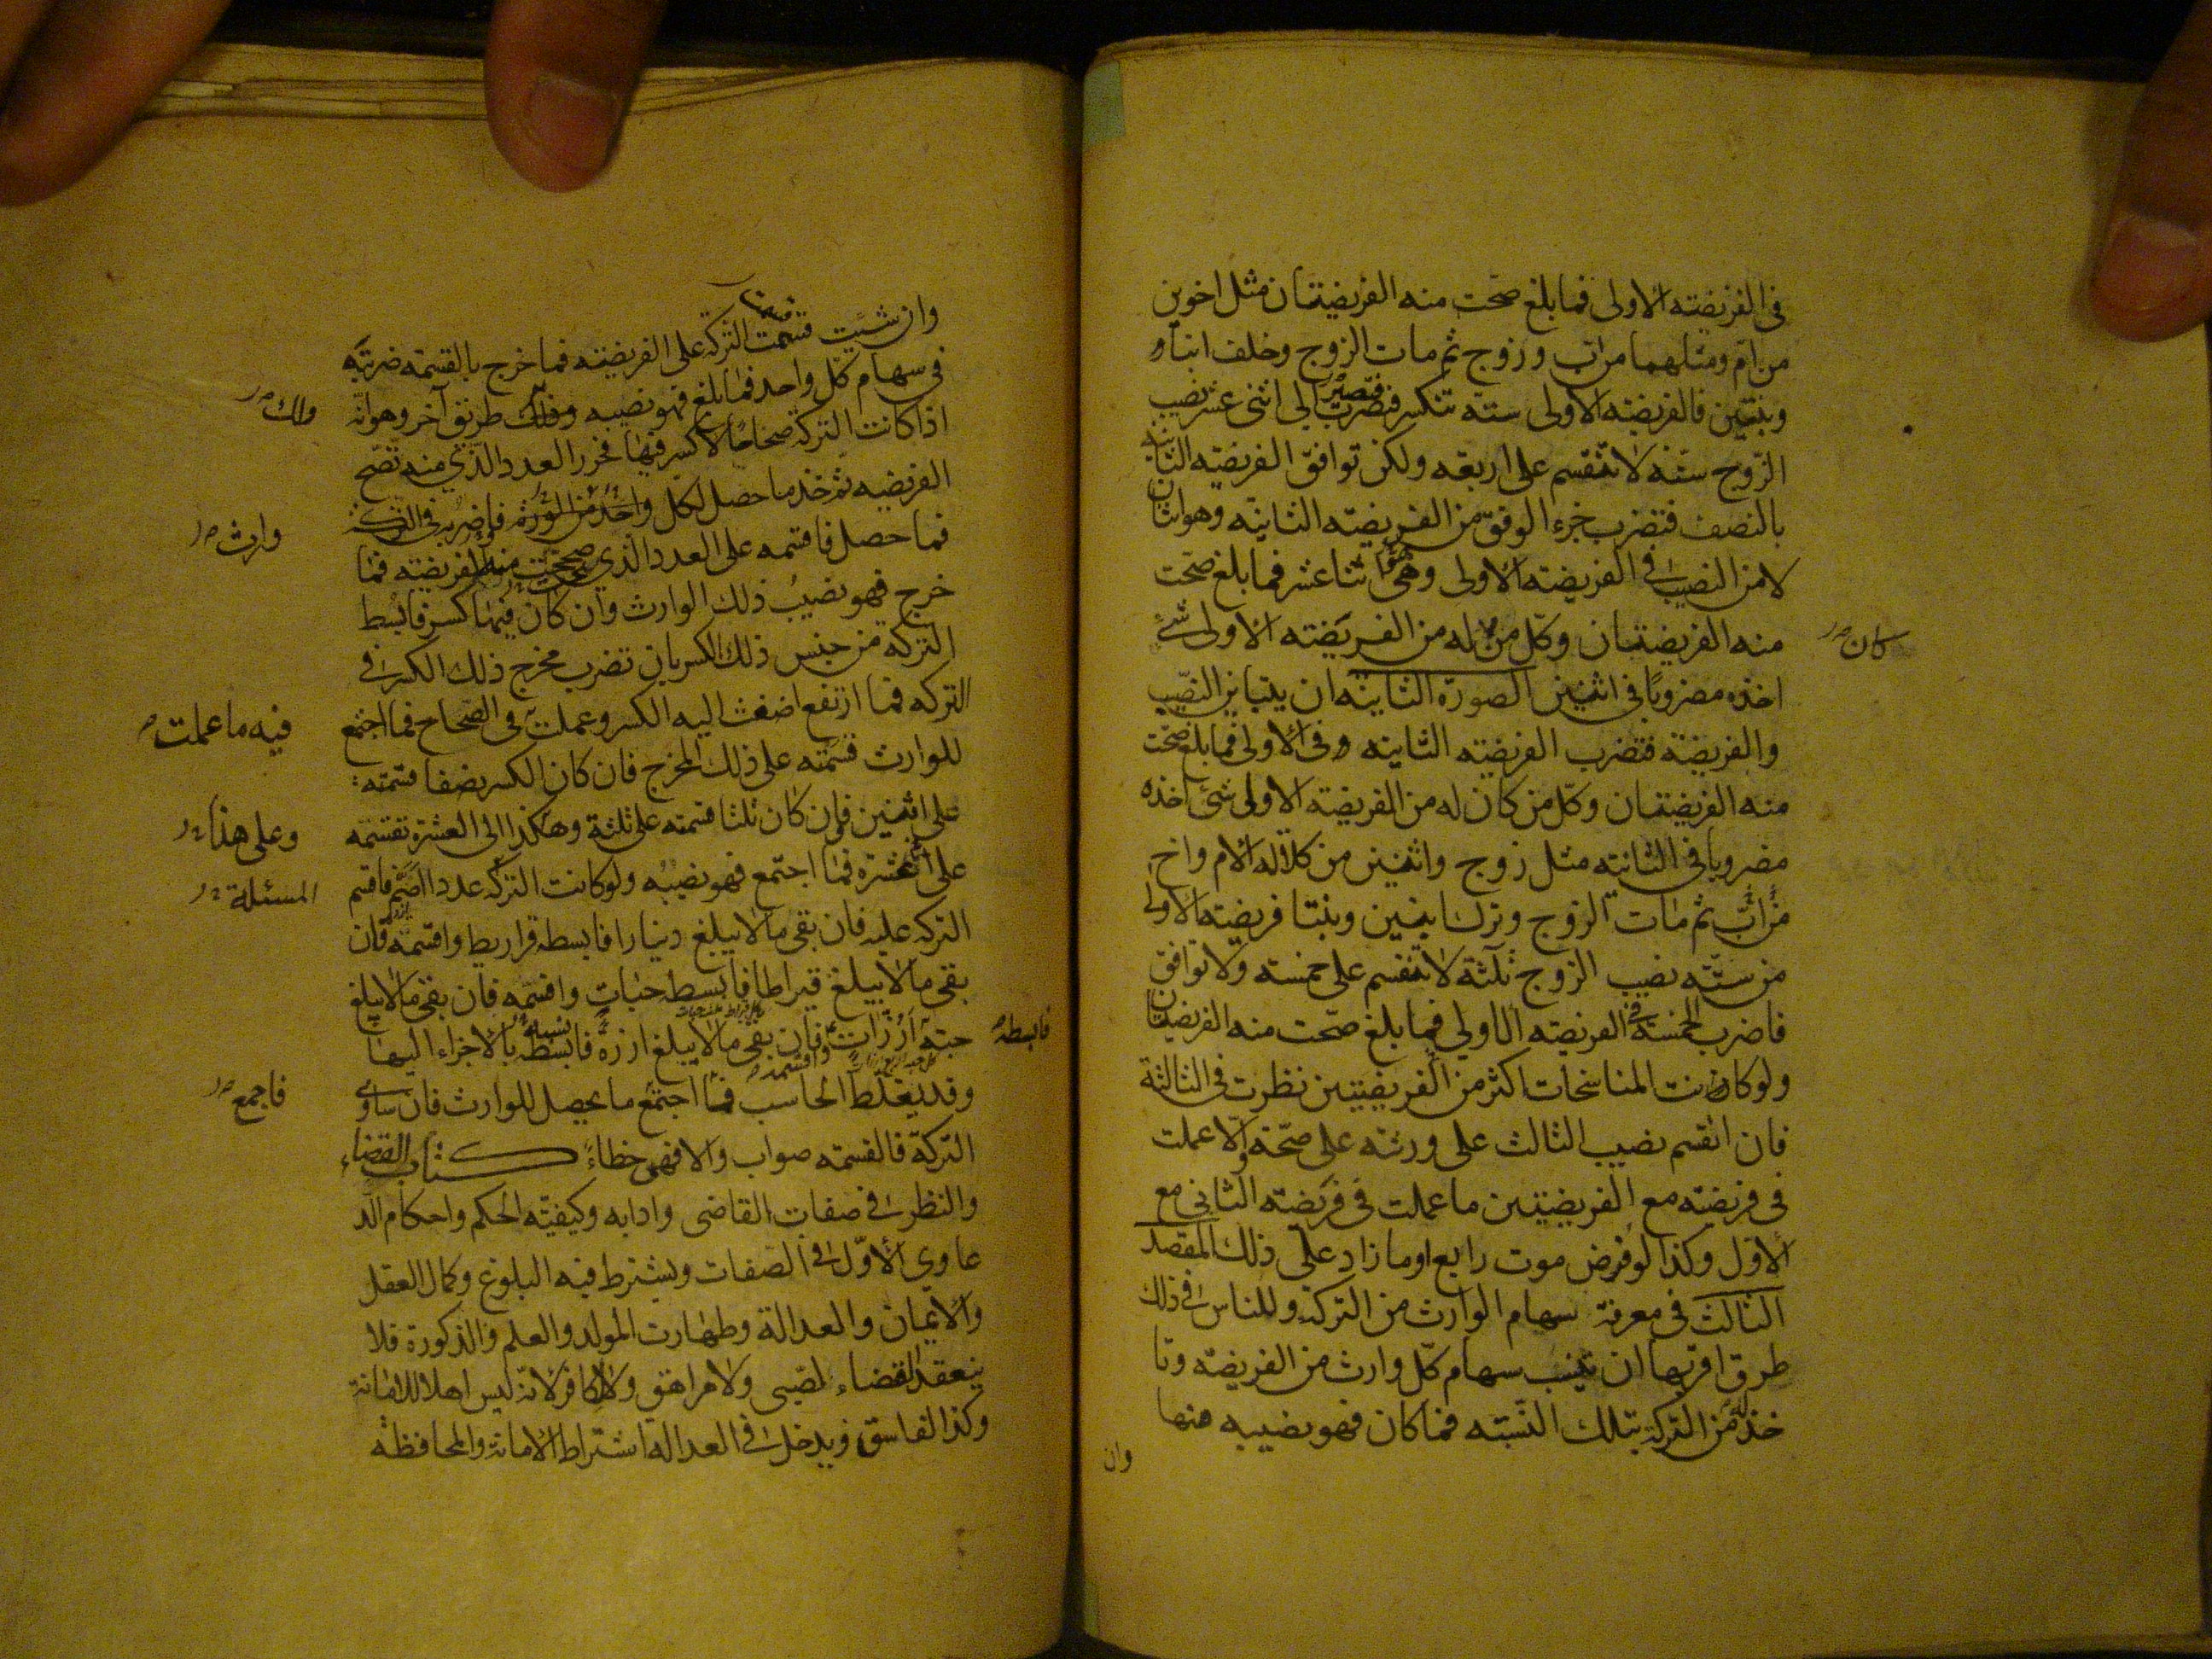 في الفريضته الاولى فما بلغ صحت منه الفريضتان مثل اخوين
من ام ومثلهما من اب وزوج ثم مات الزوج وخلف ابنا و
وبنتين فالفريضته الاولى ستته تنكسر فتصير الى اثنى عشر نصيب
الزوج ستته لا تنقسم على اربعه ولكن توافق الفريضته الثانية
بالنصف فتضرب جزء الوفق من الفريضته الثانيته وهو اثنان
لا من النصيب في الفريضته الاولى وهي اثنا عشر فما بلغ صحت
منه الفريضتان وكل من له من الفريضته الاولى شيء
كان
اخذه مضروبا في اثنين الصورة الثانيته ان يتباين النصيب
والفريضة فتضرب الفريضته الثانيته في الاولى فما بلغ صحت
منه الفريضتان وكل من كان له من الفريضته الاولى شئ اخذه
مضروبا في الثانيته مثل زوج واثنين من كلالة الام واخ
من اب ثم مات الزوج وترك ابنين وبنتا فريضته الاولى
من ستته نصيب الزوج ثلثة لا تنقسم على خمسته ولا توافق
فاضرب الخمسته في الفريضته الاولى فما بلغ صحت منه الفريضتان
ولو كانت المناسخات اكثر من الفريضتين نظرت في الثالثة
فان انقسم نصيب الثالث على ورثته على صحة والا عملت
في فريضته مع الفريضتين ما عملت في فريضته الثاني مع
الاول وكذا لو فرض موت رابع او ما زاد على ذلك المقصد
الثالث في معرفة سهام الوارث من التركة وللناس في ذلك
طرق اقربها ان تنسب سهام كل وارث من الفريضته وتا
خذ له من التركة بتلك النسبته فما كان فهو نصيبه منها
وان
وان شئيت قسمت التركة على الفريضته فما خرج بالقسمته ضربته
في سهام كل واحد فما بلغ فهو نصيبه وذلك طريق آخر وهو انه
ولك
اذا كانت التركة صحاحا لا كسر فيها فحرر العدد الذي منه تصح
الفريضيه ثم خذ ما حصل لكل واحد من الورثه فاضربه في التركة
وارث
فما حصل فاقسمه على العدد الذي صحت منه الفريضته فما
خرج فهو نصيب ذلك الوارث وان كان فيها كسر فابسط
التركه من جنس ذلك الكسر بان تضرب مخرج ذلك الكسر في
التركه فما ارتفع اضفت اليه الكسر وعملت في الصحاح فما اجتمع
فيه ما عملت
للوارث قسمته على ذلك المخرج فان كان الكسر نصفا قسمته
على اثنين فان كان ثلثا قسمته على ثلثة وهكذا الى العشرة تقسمه
وعلى هذا
على عشرة فما اجتمع فهو نصيبه ولو كانت التركه عددا اصم فاقسم
المسئلة
التركه عليه فان بقى ما لا يبلغ دينارا فابسطه قراريط واقسمه فان
بقى ما لا يبلغ قيراطا فابسطه حبات واقسمه فان بقى ما لا يبلغ
حبته ارزات فان بقى ما لا يبلغ ارزة فابسطه بالاجزاء اليها
فابسطه
وقد يغلط الحاسب فما اجتمع ما يحصل للوارث فان ساوى
فاجمع
التركة فالقسمته صواب والا فهى خطاء كتاب القضاء
والنظر في صفات القاضى وادابه وكيفيته الحكم واحكام الد
عاوى الاول في الصفات ويشترط فيه البلوغ وكمال العقل
والايمان والعدالة وطهارت المولد والعلم والذكورة فلا
ينعقد القضاء لصبى ولا مراهق ولا كافر لانه ليس اهلا للامانة
وكذا الفاسق ويدخل في العداله اشتراط الامانة والمحافظه